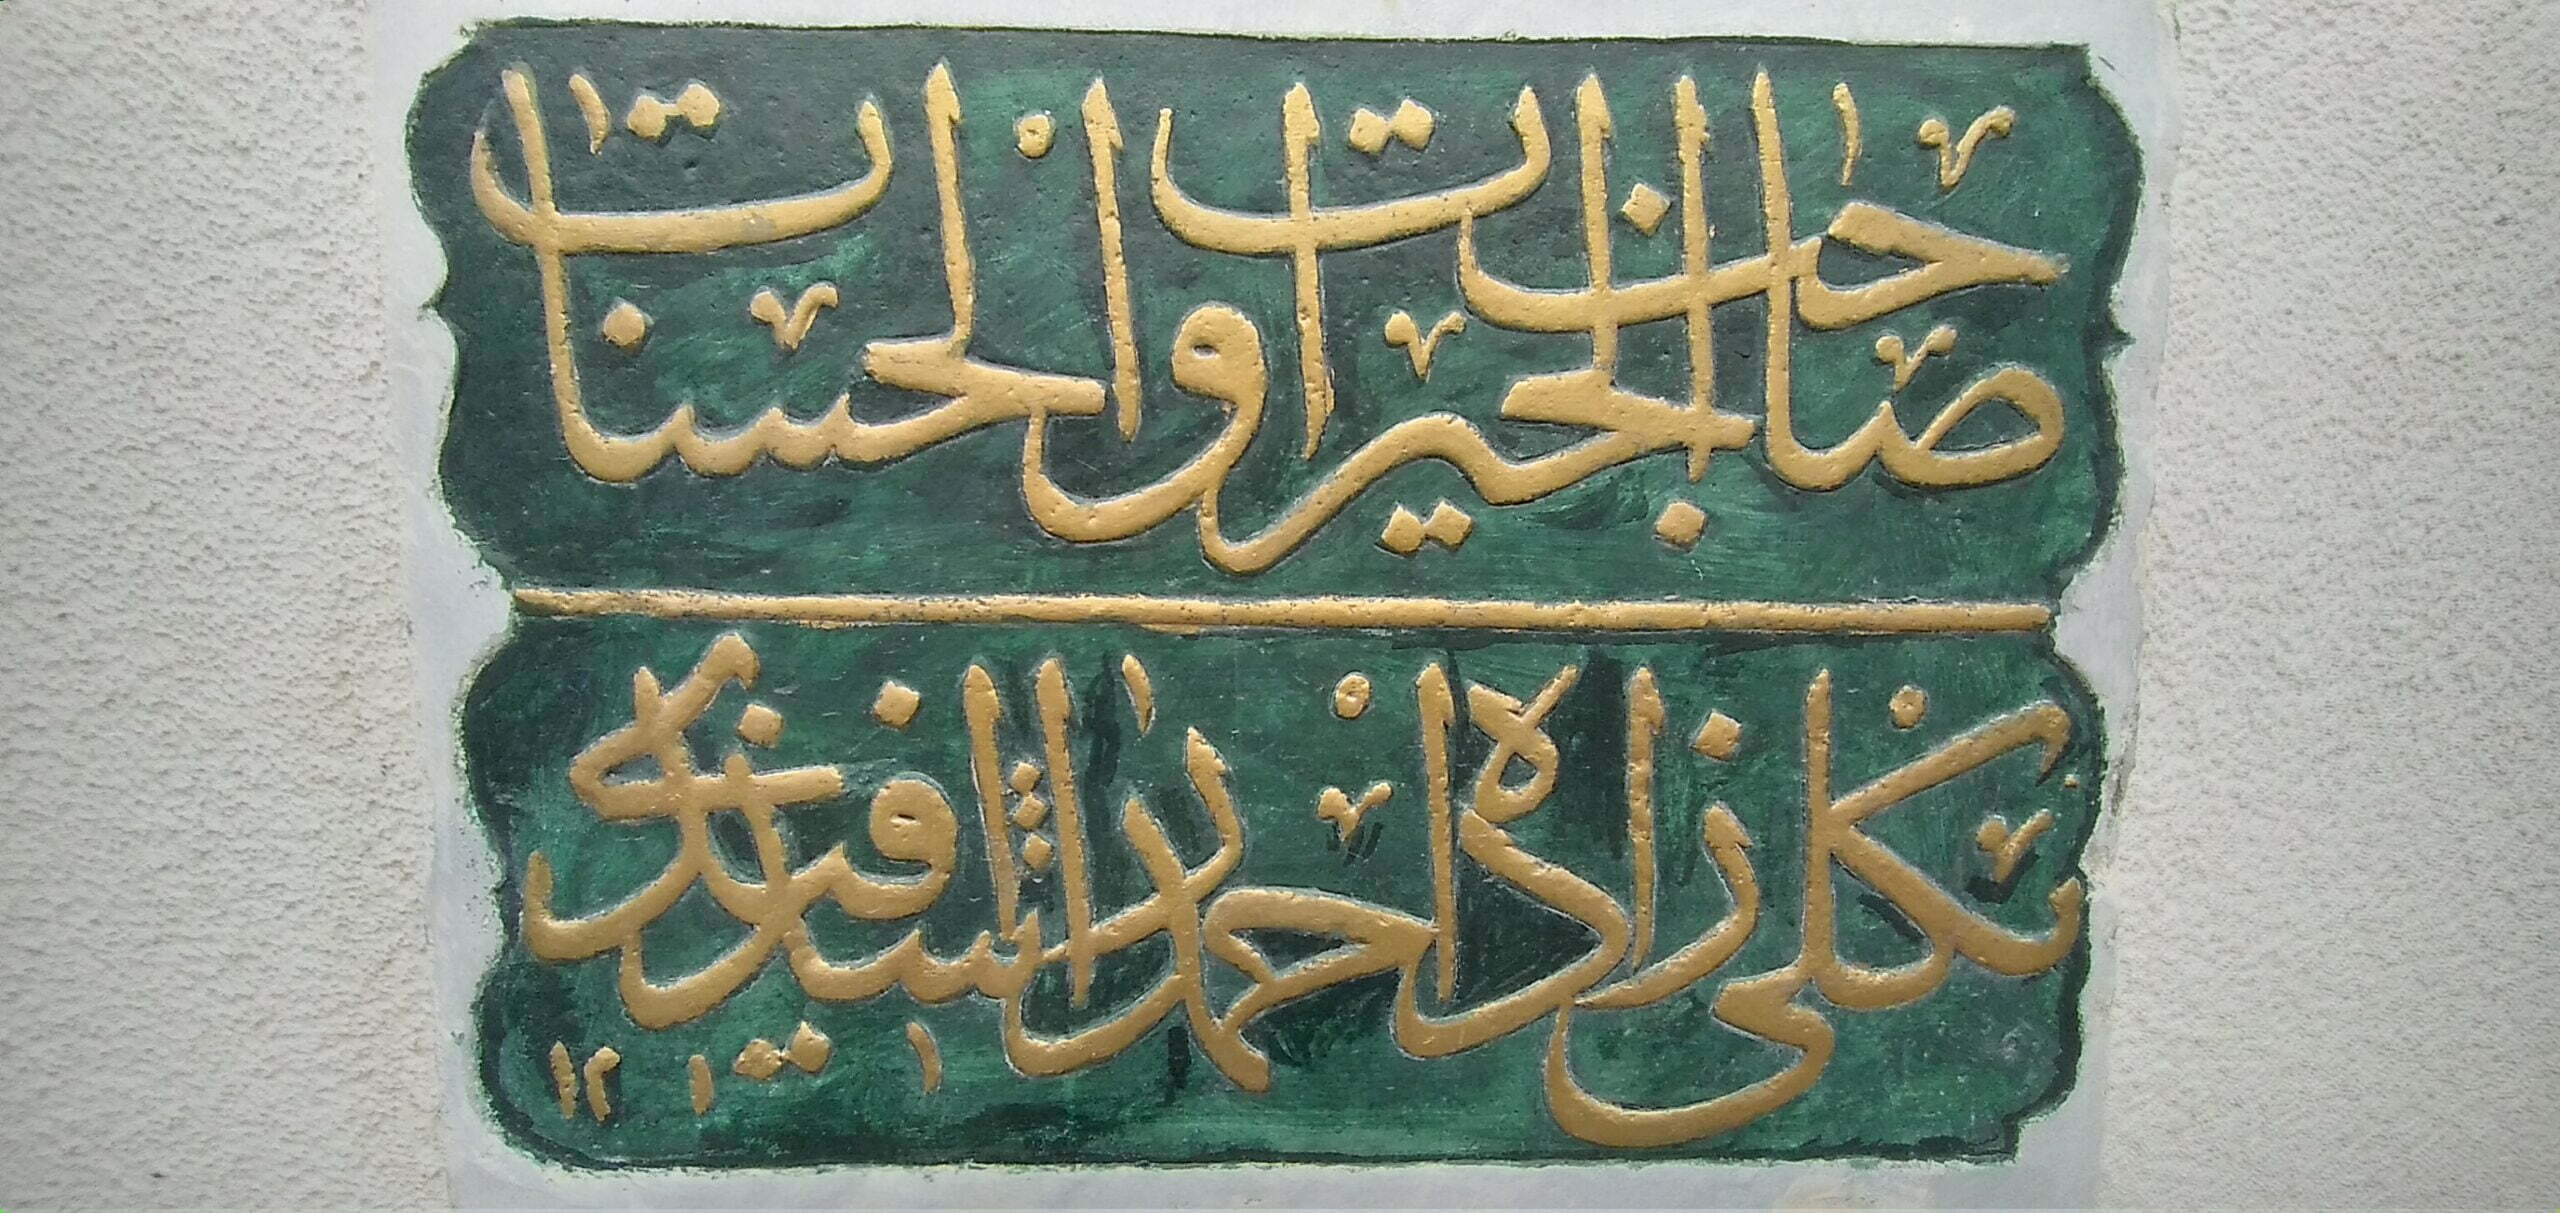 صاحب الخيرات والحسنات
تكلى زاده احمد راشد افندى